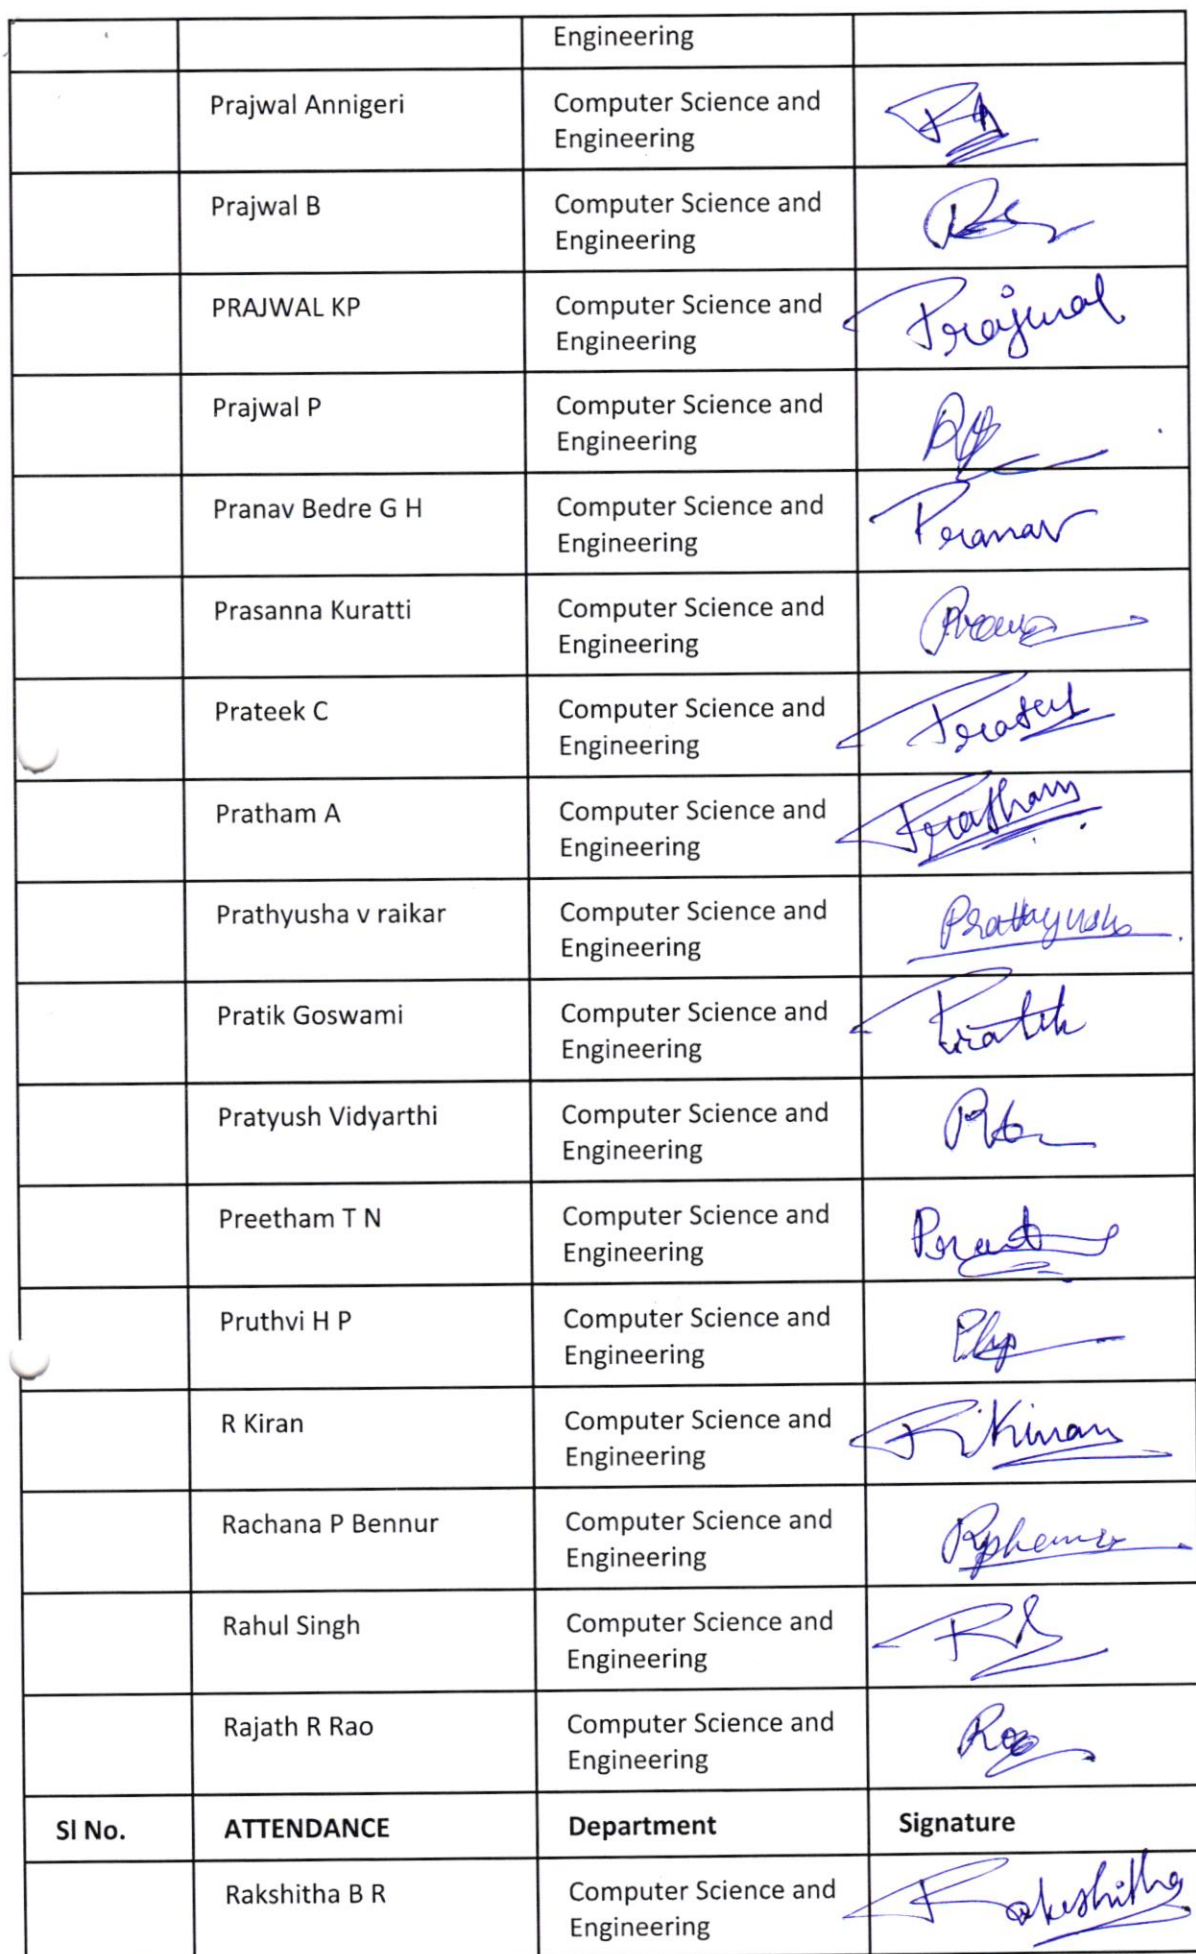 Engineering
Prajwal Annigeri Computer Science and
Engineering
PA
Prajwal B Computer Science and
Engineering
PRAJWAL KP Computer Science and Prajwal
Engineering
Prajwal P Computer Science and
Engineering
Pranav Bedre G H Computer Science and Pranav
Engineering
Prasanna Kuratti Computer Science and
Engineering
Prateek C Computer Science and
Engineering
Pratham A Computer Science and Pratham
Engineering
Prathyusha v raikar Computer Science and
Engineering
Pratik Goswami Computer Science and Pratik
Engineering
Pratyush Vidyarthi Computer Science and
Engineering
Preetham T N Computer Science and
Engineering
Pruthvi H P Computer Science and
Engineering
R Kiran Computer Science and R Kiran
Engineering
Rachana P Bennur Computer Science and
Engineering
Rahul Singh Computer Science and RS
Engineering
Rajath R Rao Computer Science and
Engineering
Sl No. ATTENDANCE Department Signature
Rakshitha B R Computer Science and Rakshitha
Engineering